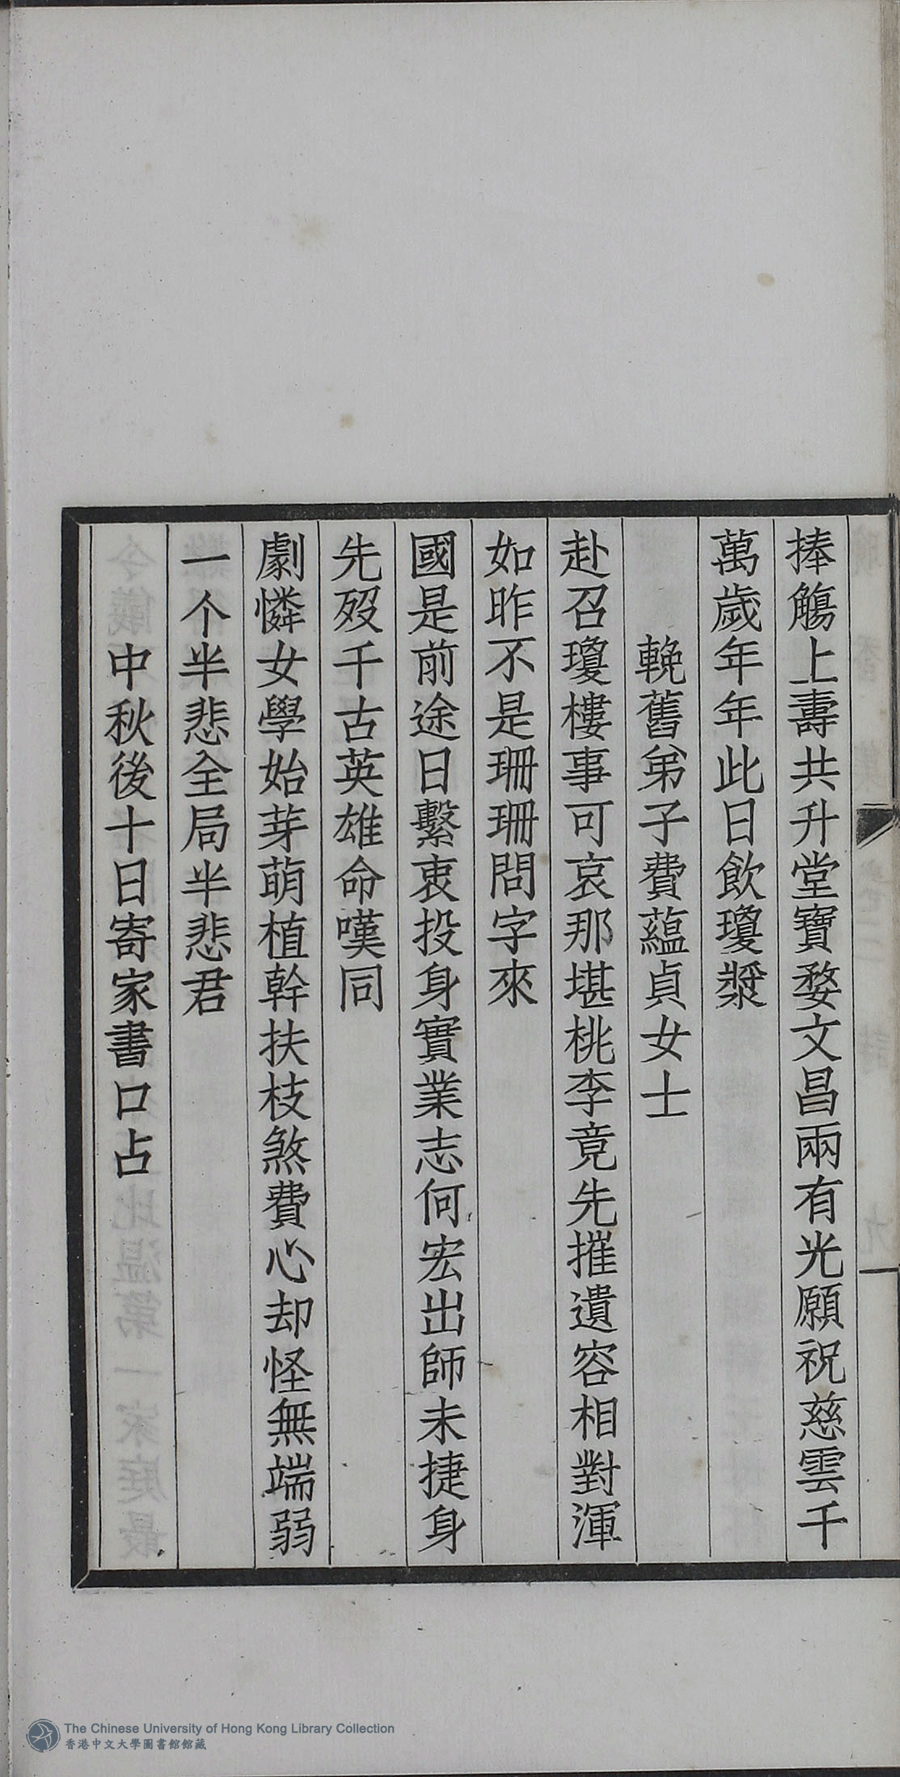 捧觴上壽共升堂寶婺文昌兩有光願祝慈雲千
萬歲年年此日飲瓊漿
輓舊弟子費蘊貞女士
赴召瓊樓事可哀那堪桃李竟先摧遺容相對渾
如昨不是珊珊問字來
國是前途日繫衷投身實業志何宏出師未捷身
先歿千古英雄命嘆同
劇憐女學始芽萌植幹扶枝煞費心却怪無端弱
一个半悲全局半悲君
中秋後十日寄家書口占
The Chinese University of Hong Kong Library Collection
香港中文大學圖書館館藏